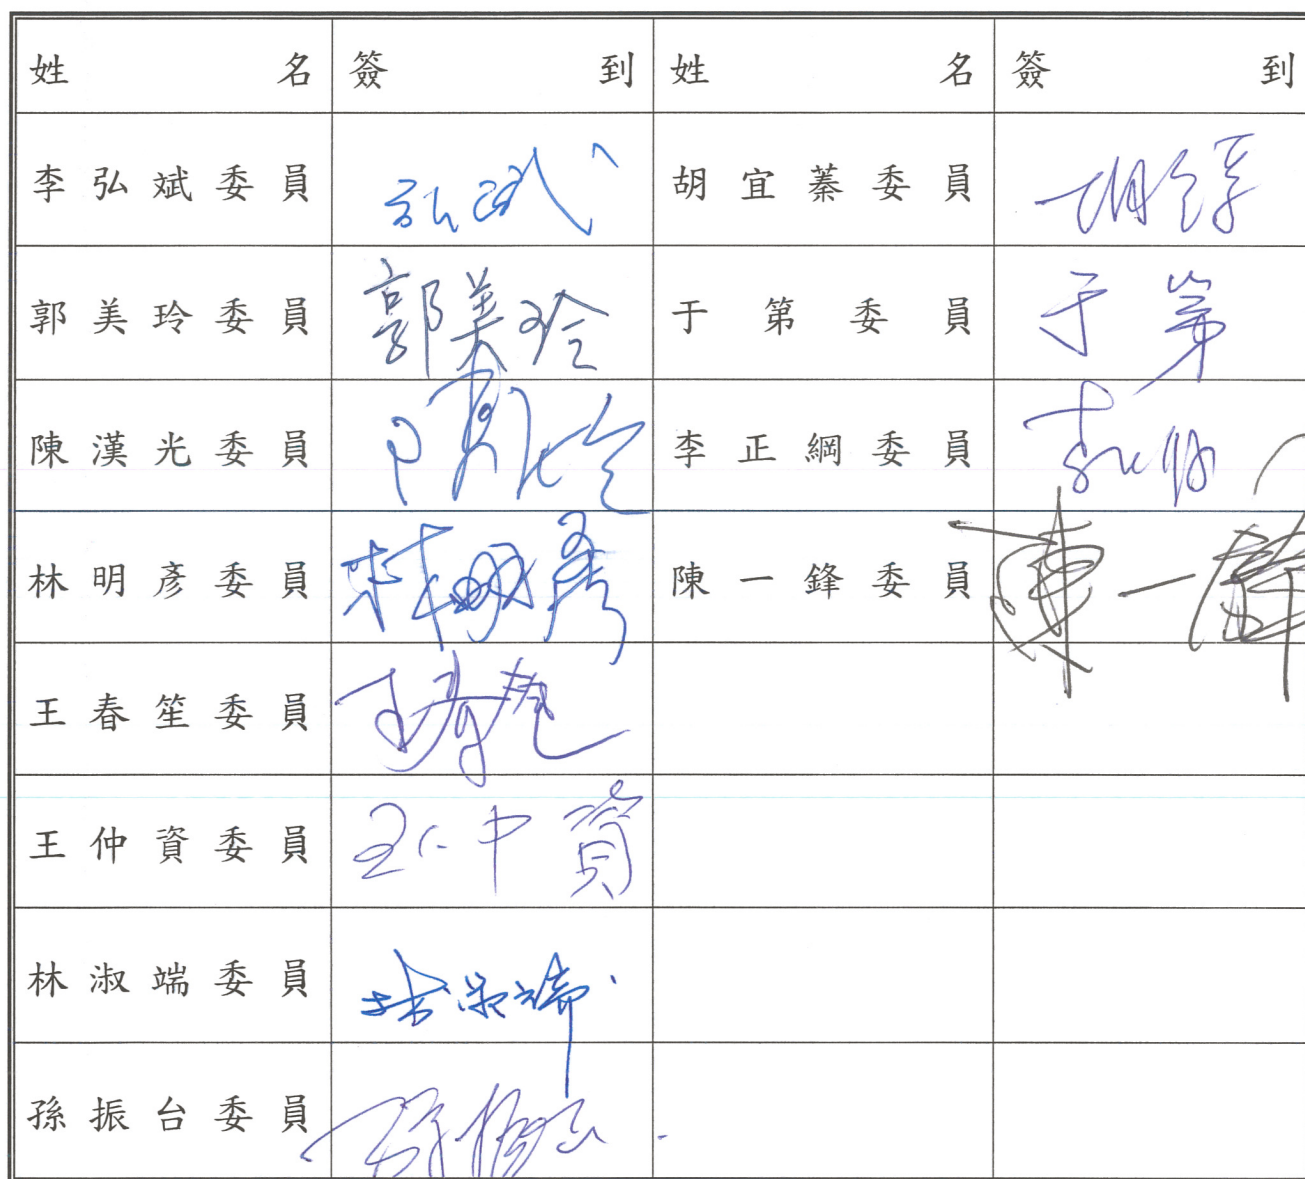 姓名 簽到 姓名 簽到
李弘斌委員 弘斌 胡宜蓁委員
郭美玲委員 郭美玲 于第委員 于第
陳漢光委員 李正綱委員
林明彥委員 林明彥 陳一鋒委員 陳一鋒
王春笙委員 王春笙
王仲資委員 王仲資
林淑端委員 林淑端
孫振台委員 孫振台